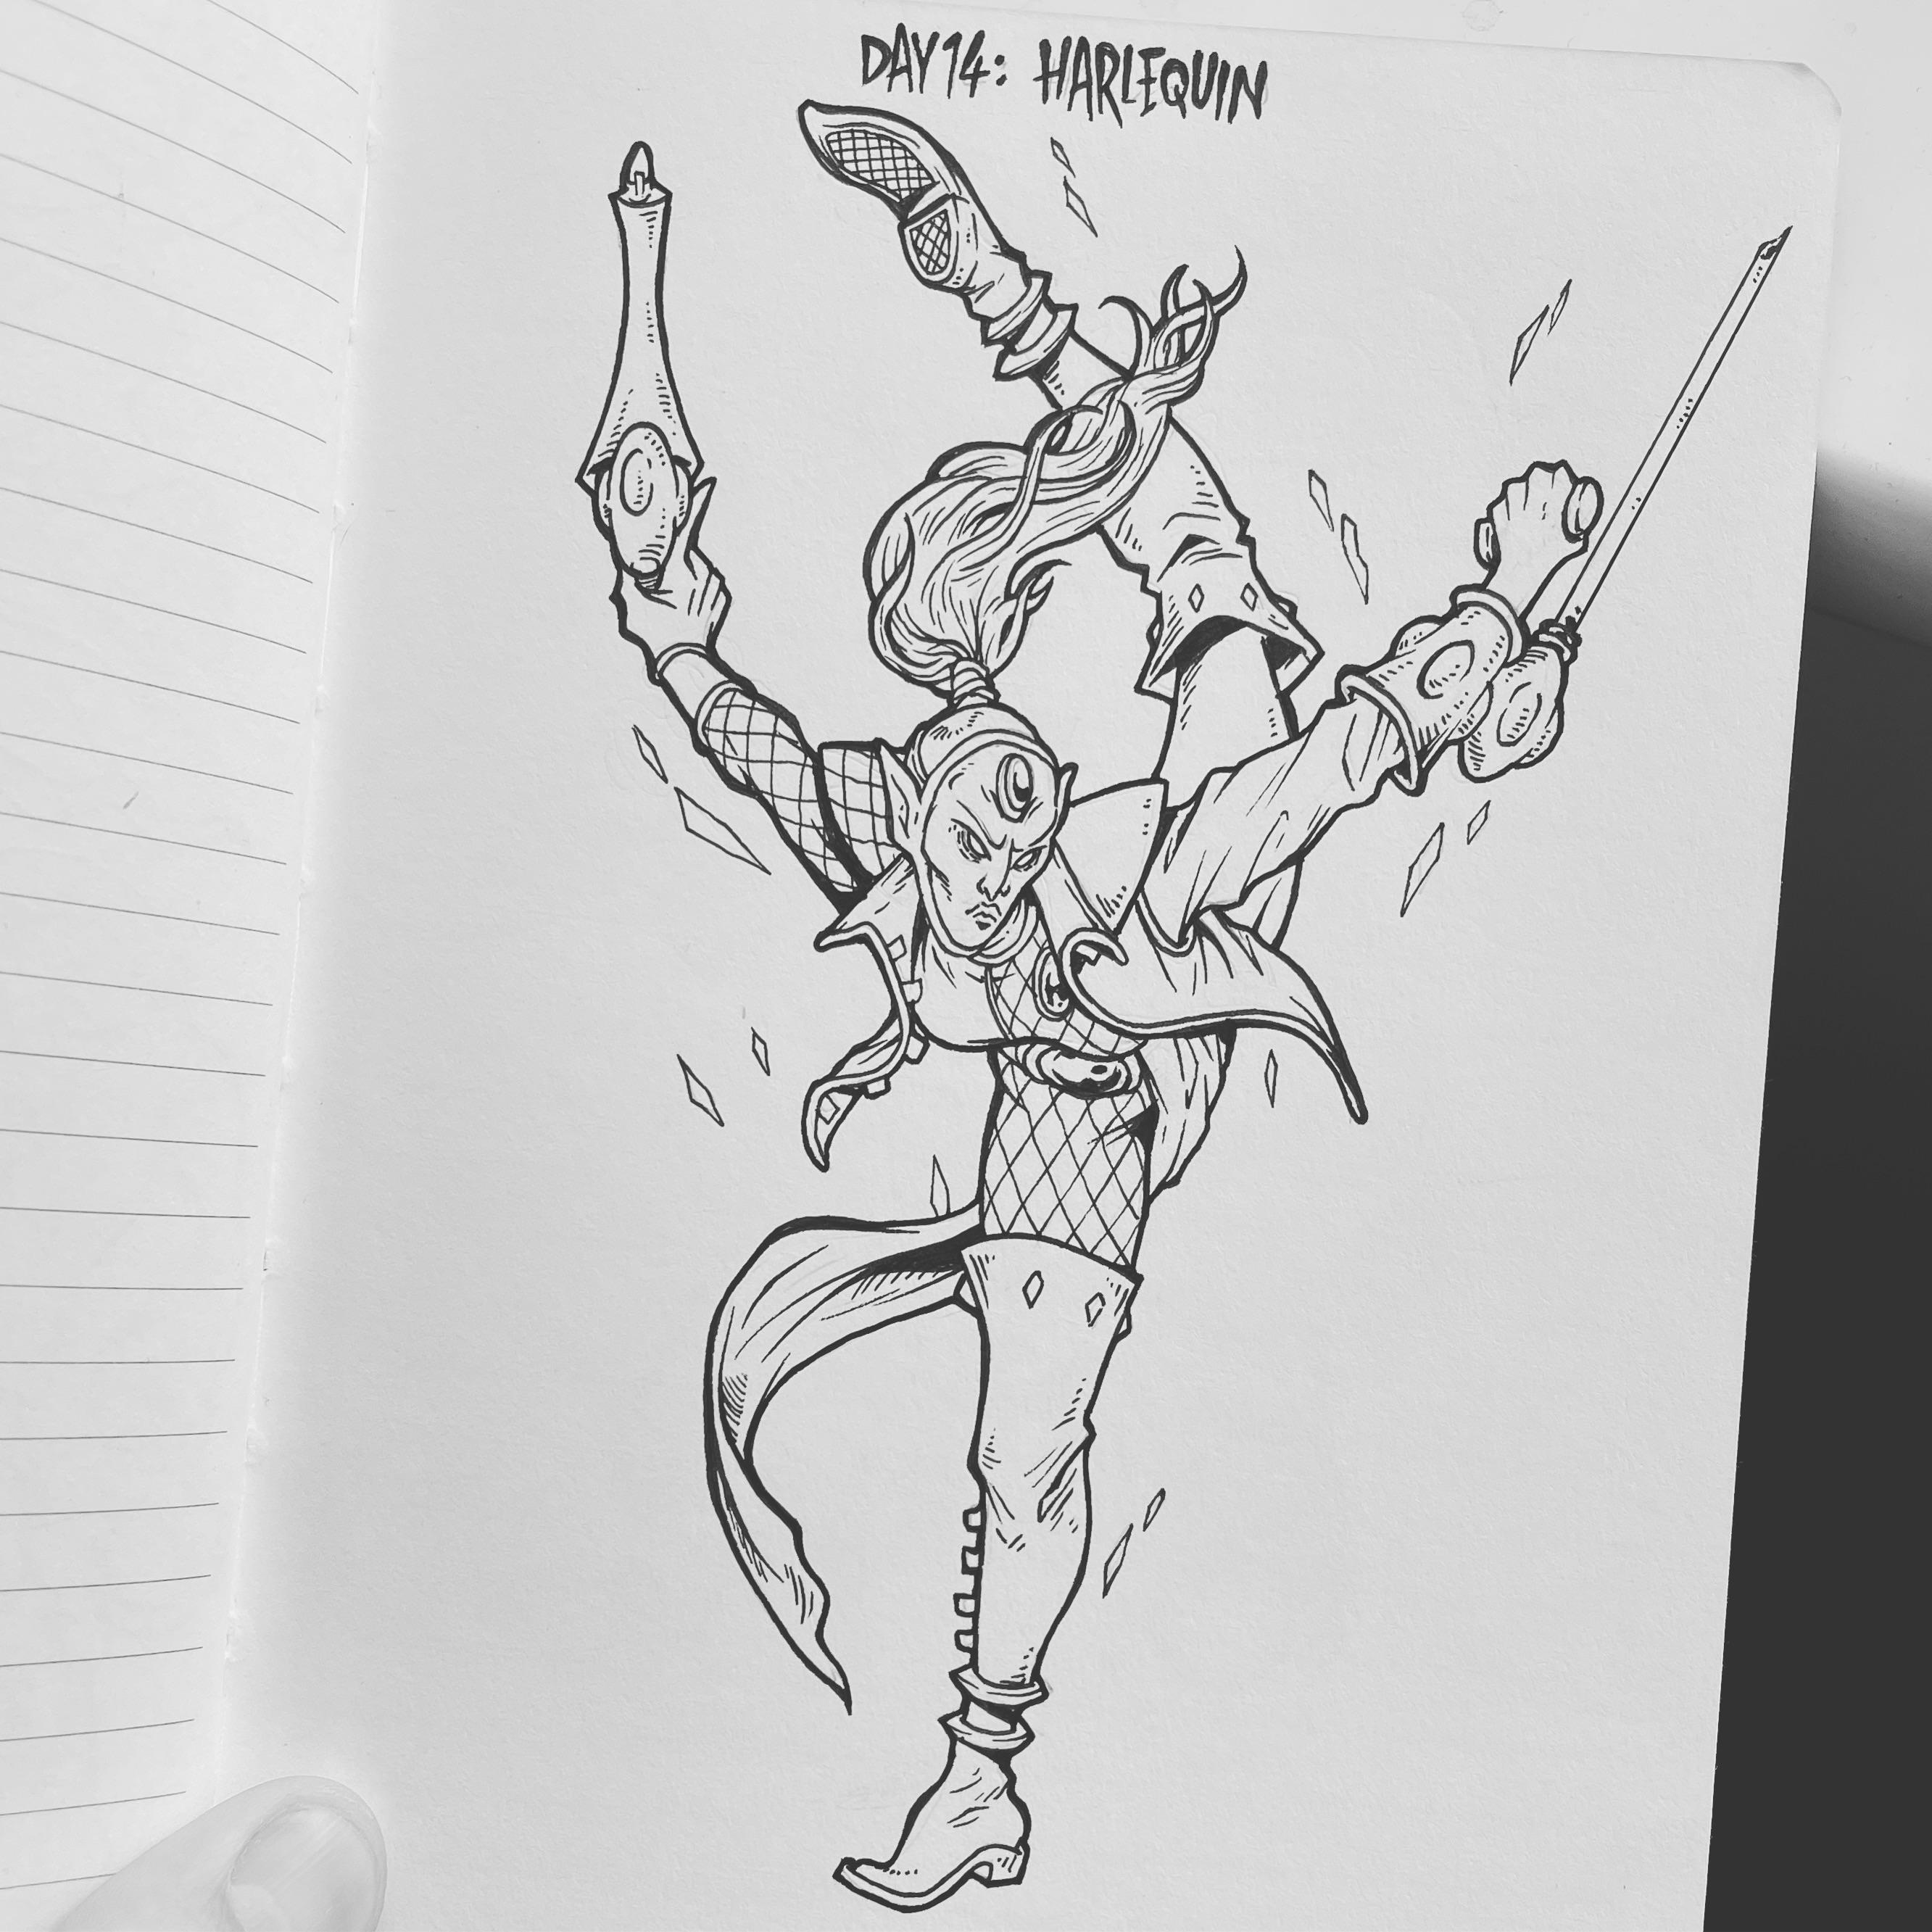 DAY 14: HARLEQUIN